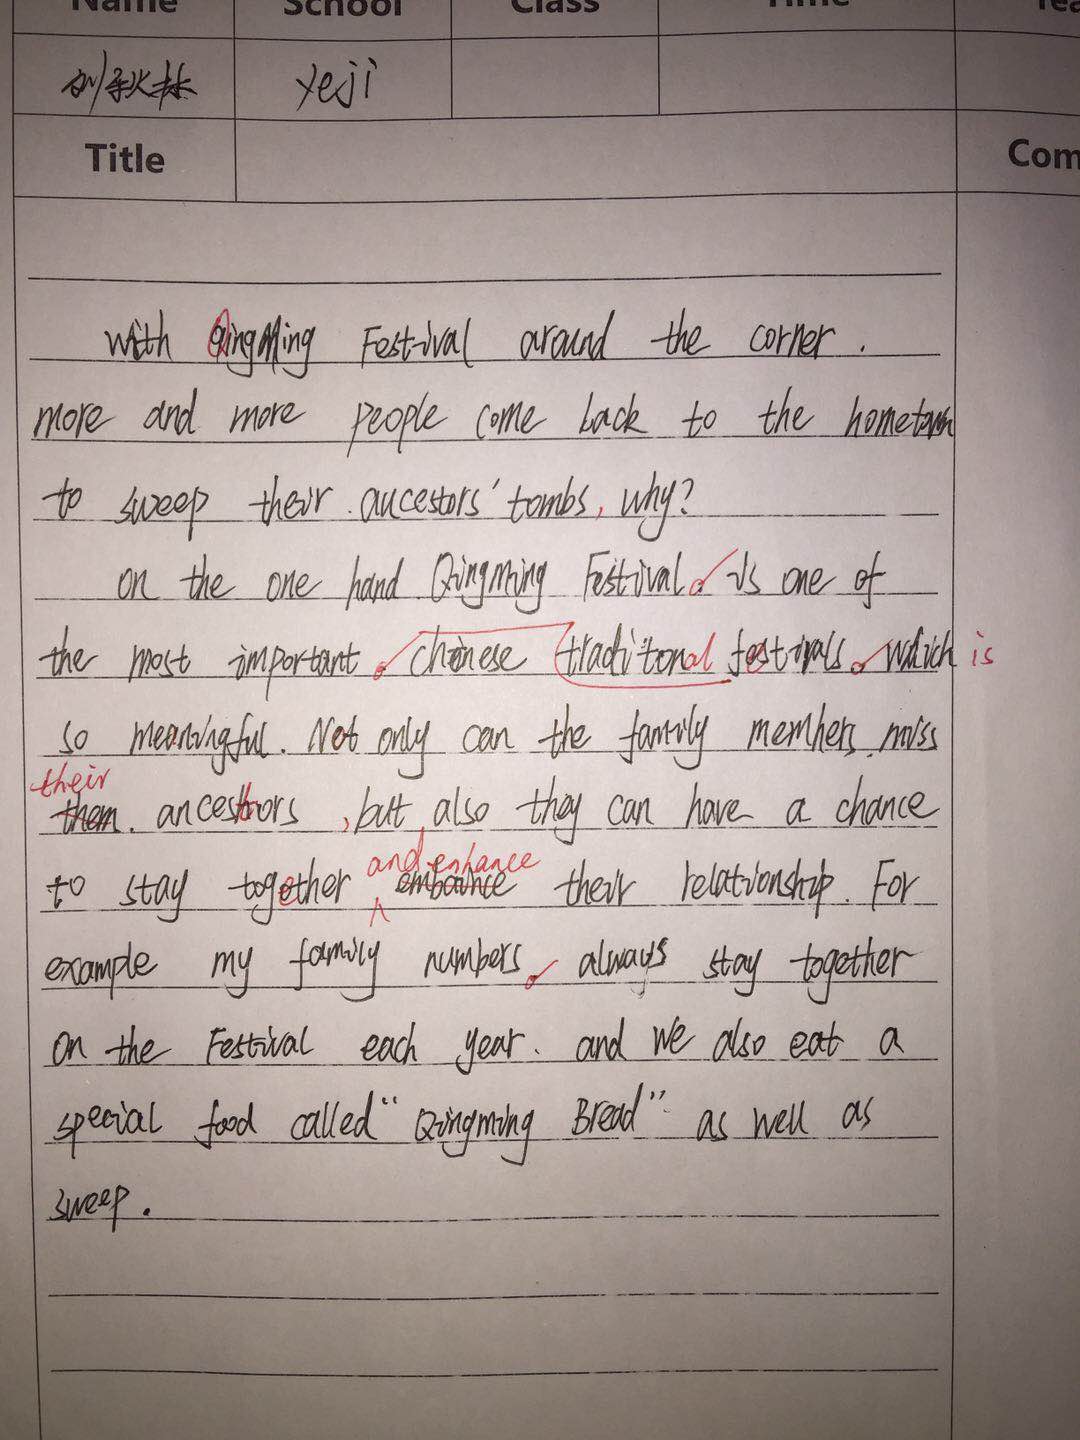 Name School Class Time Tea
刘秋林 Yeji
Title Com
with QingMing Festival around the corner.
more and more people come back to the hometown
to sweep their ancestors' tombs, why?
on the one hand Qingming Festival. is one of
the most important. chinese traditional festivals. which is
so meaningful. Not only can the family members miss
their
them. ancestors, but also they can have a chance
and enhance
to stay together embounce their relationship. For
example my family numbers. always stay together
on the Festival each year. and we also eat a
special food called "Qingming Bread" as well as
sweep.